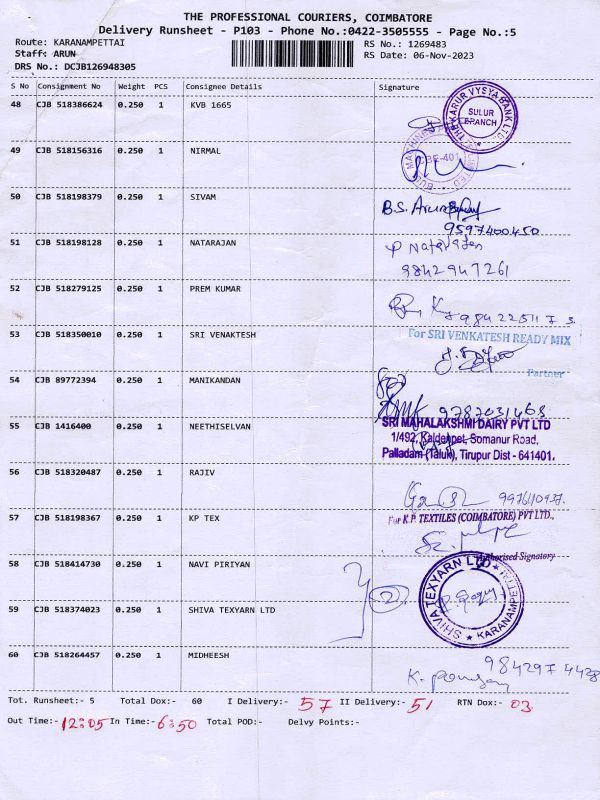 THE PROFESSIONAL COURIERS, COIMBATORE
Delivery Runsheet - P103 - Phone No.:0422-3505555 - Page No.:5
Route: KARANAMPETTAI
Staff: ARUN
DRS No.: DCJB126948305
RS No.: 1269483
RS Date: 06-Nov-2023
S No Consignment No Weight PCS Consignee Details Signature
48 CJB 518386624 0.250 1 KVB 1665
THE KARUR VYSYA BANK LTD. SULUR BRANCH
49 CJB 518156316 0.250 1 NIRMAL
50 CJB 518198379 0.250 1 SIVAM
B.S.
9597400450
51 CJB 518198128 0.250 1 NATARAJAN
P Natarajan
9842947261
52 CJB 518279125 0.250 1 PREM KUMAR
53 CJB 518350010 0.250 1 SRI VENAKTESH
For SRI VENKATESH READY MIX
Partner
54 CJB 89772394 0.250 1 MANIKANDAN
9787031468
55 CJB 1416400 0.250 1 NEETHISELVAN
SRI MAHALAKSHMI DAIRY PVT LTD
1/492, Kaldenpet, Somanur Road,
Palladam (Taluk), Tirupur Dist - 641401.
56 CJB 518320487 0.250 1 RAJIV
57 CJB 518198367 0.250 1 KP TEX
For K.P. TEXTILES (COIMBATORE) PVT LTD.,
Authorised Signatory
58 CJB 518414730 0.250 1 NAVI PIRIYAN
59 CJB 518374023 0.250 1 SHIVA TEXYARN LTD
2
SHIVA TEXYARN LTD ★ KARANAMPETTAI ★
60 CJB 518264457 0.250 1 MIDHEESH
9842974428
Tot. Runsheet:- 5 Total Dox:- 60 I Delivery:- 57 II Delivery:- 51 RTN Dox:- 03
Out Time:- 12:05 In Time:- 6:50 Total POD:- Delvy Points:-